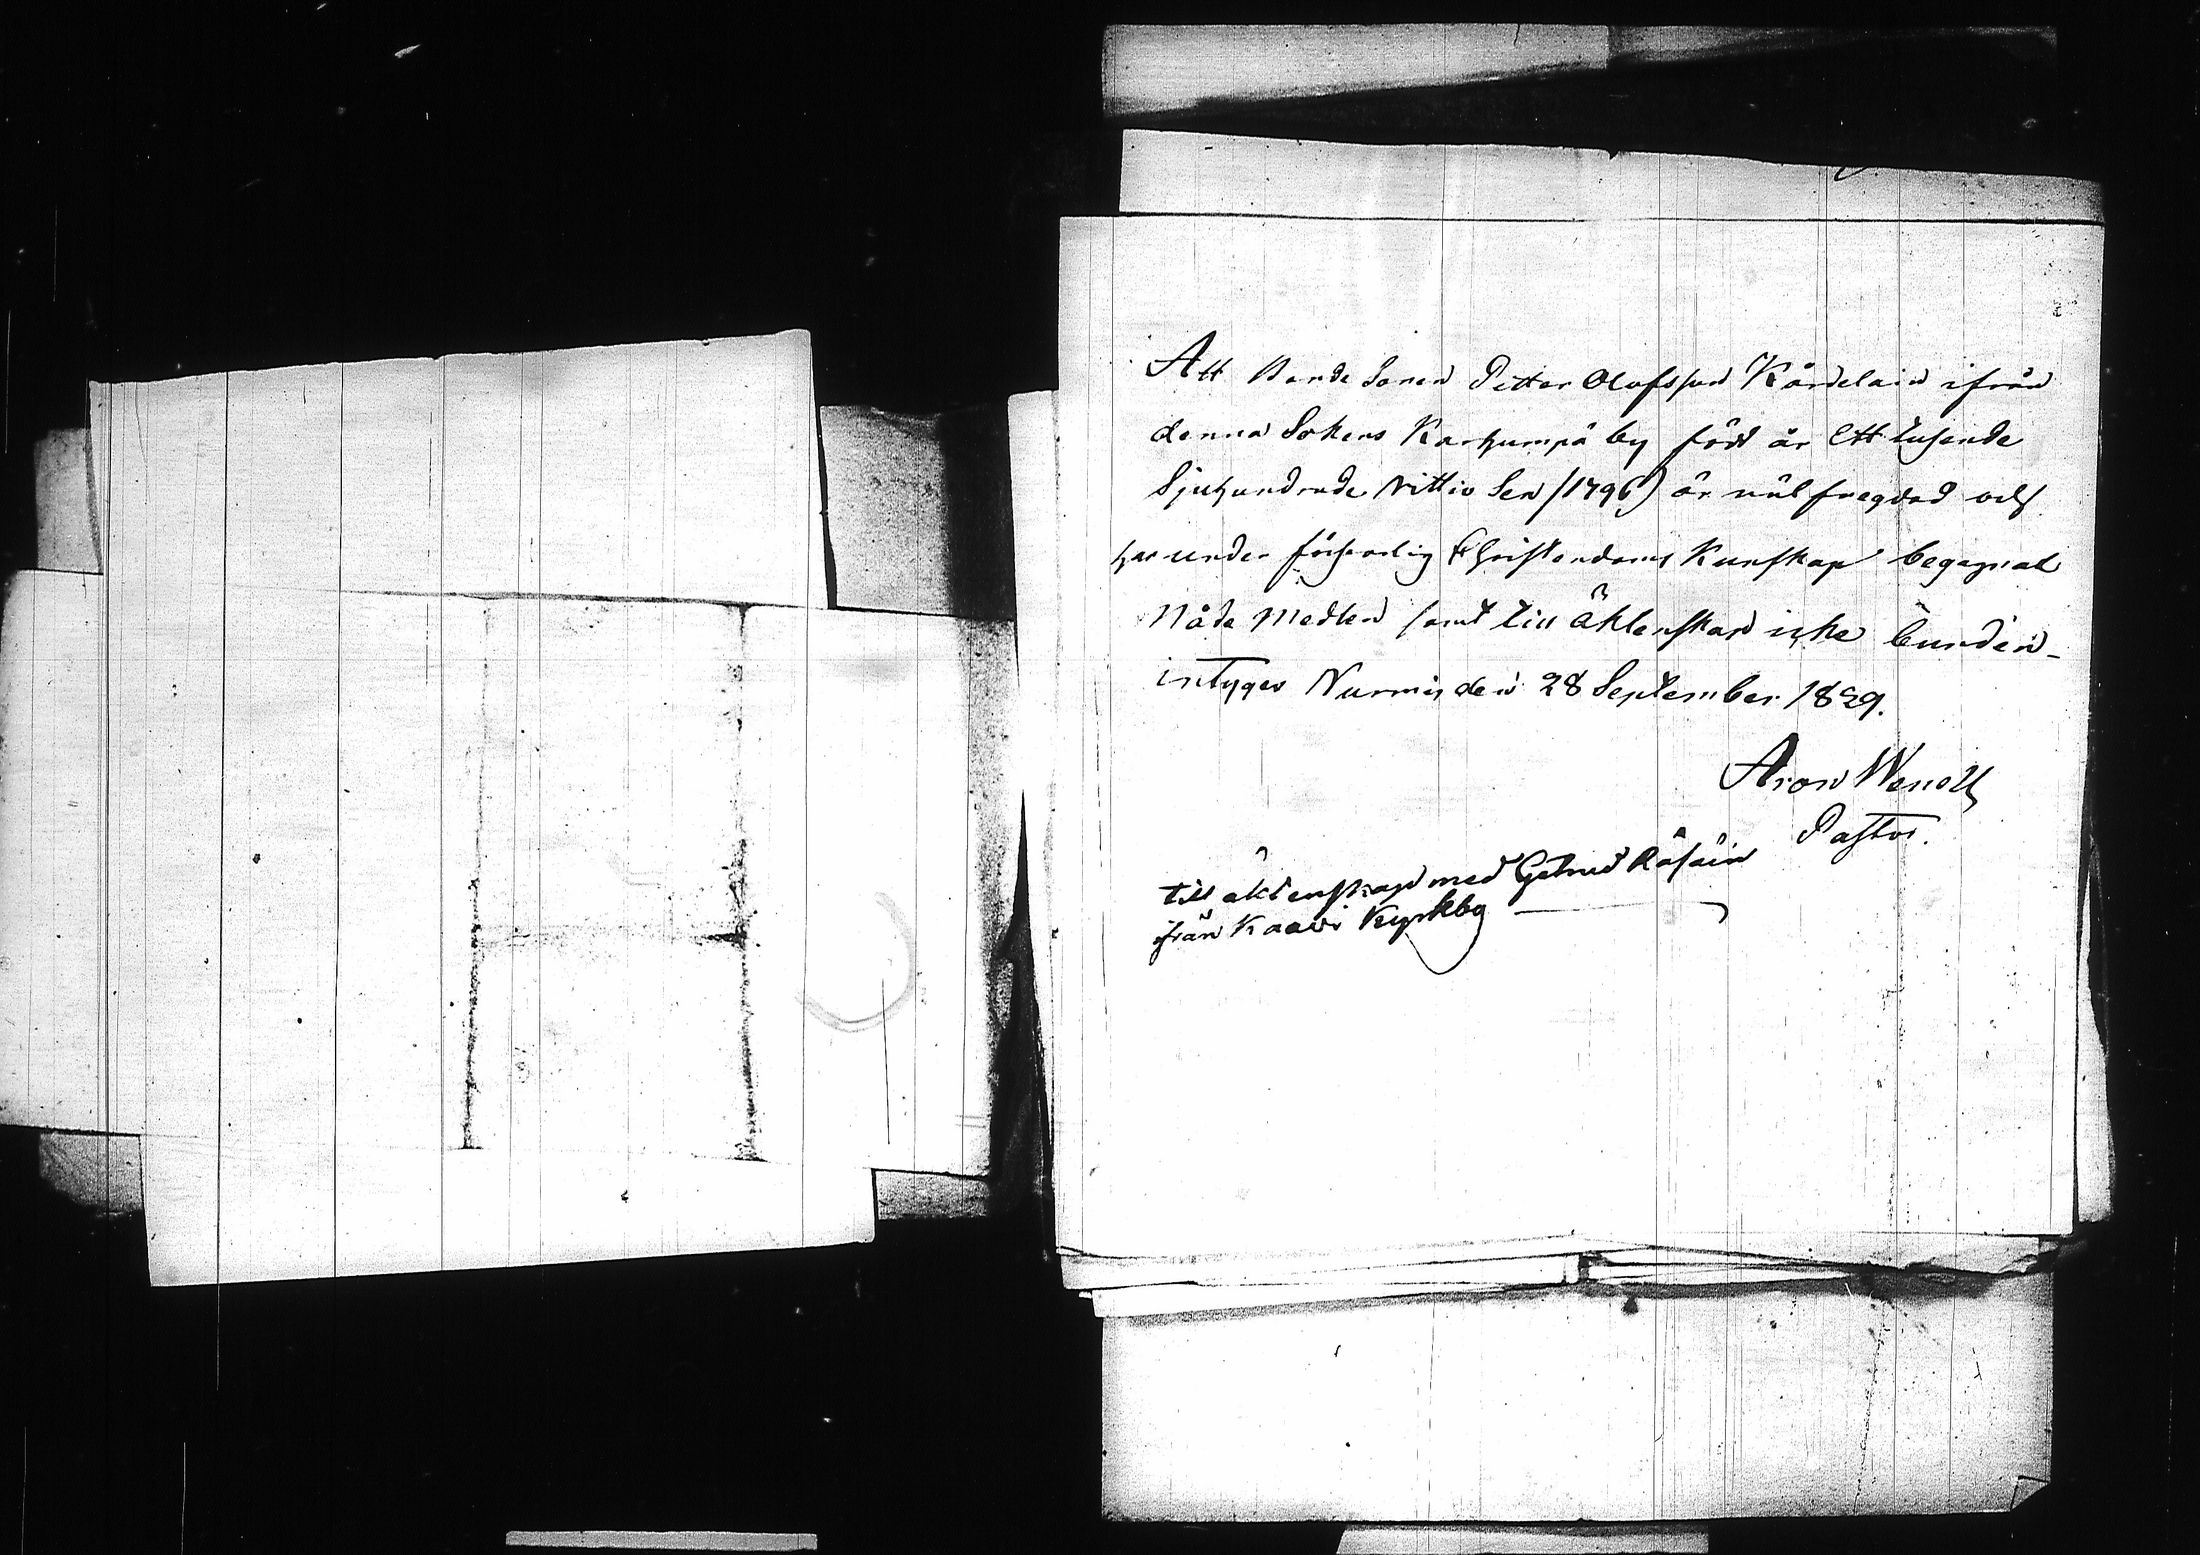 Att Bonde Sonen Petter Olofsson Kärdelain ifrån
denna Sokens Karhumpä by född år Ett tusende
Sjuhundrade Nittio Sex (1796) är väl frägdad och
har under försvarlig Christendoms Kunskap begagnat
Nåde Medlen samt till Äktenskap icke bunden -
intygas Nurmis den 28 September 1829.
Aron
Pastor.
till äktenskap med Getrud Räsäin
ifrån Kaavi Kyrkby